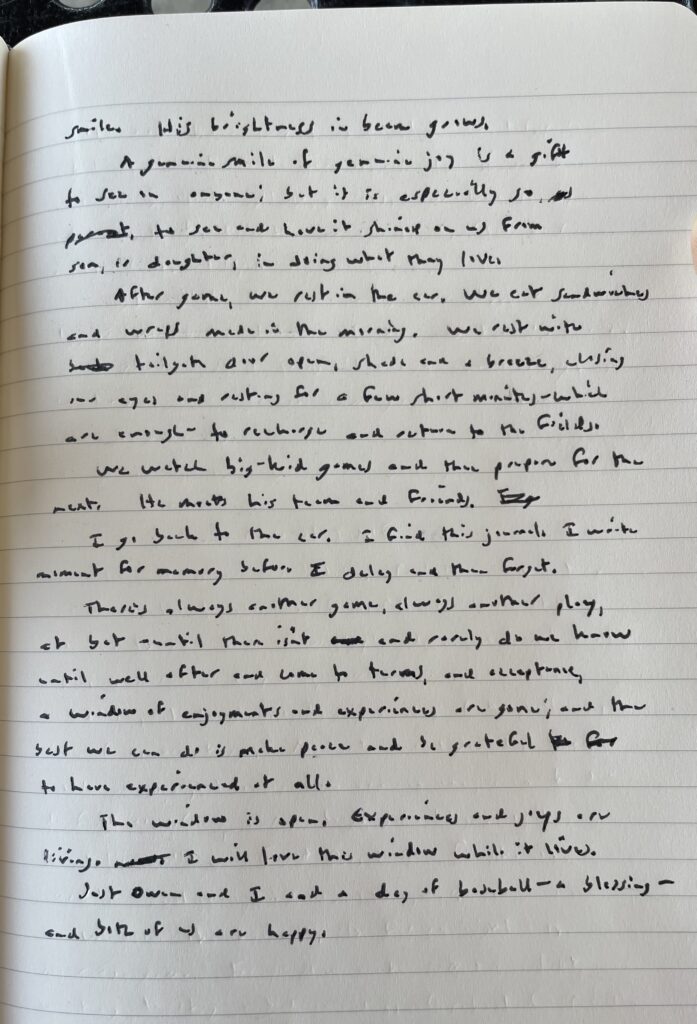 smile. His brightness in beam grows.
A genuine smile of genuine joy is a gift
to see on anyone; but it is especially so, as
parent, to see and have it shining on us from
son, or daughter, in doing what they love.
After game, we rest in the car. We eat sandwiches
and wraps made in the morning. We rest with
tailgate door open, shade and a breeze, closing
our eyes and resting for a few short minutes - which
are enough - to recharge and return to the fields.
We watch big-kid games and then prepare for the
next. He meets his team and friends.
I go back to the car. I find this journal. I write
moment for memory before I delay and then forget.
There's always another game, always another play,
at bat - until there isn't and rarely do we know
until well after and come to terms, and acceptance,
a window of enjoyments and experiences are gone; and the
best we can do is make peace and be grateful
to have experienced at all.
The window is open. Experiences and joys are
living. I will love this window while it lives.
Just Owen and I and a day of baseball - a blessing -
and both of us are happy.